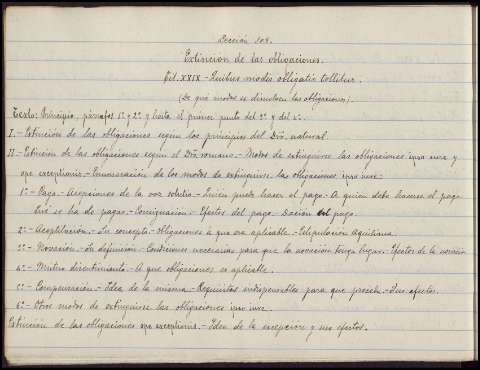 Lección 103.
Extinción de las obligaciones.
Tít. XXIX - Quibus modis obligatio tollitur.
(De qué modos se disuelven las obligaciones).
Texto: Principio, párrafos 1º y 2º y hasta el primer punto del 3º y del 4º.
I.- Extinción de las obligaciones según los principios del Dro. natural.
II.- Extinción de las obligaciones según el Dro. romano. - Modos de extinguirse las obligaciones ipso iure y
ope exceptionis. - Enumeración de los modos de extinguirse las obligaciones ipso iure:
1º - Pago. - Acepciones de la voz solutio. - Quién puede hacer el pago. - A quién debe hacerse el pago.
Qué se ha de pagar. - Consignación. - Efectos del pago. Dación en pago.
2º - Aceptilación. - Su concepto. - Obligaciones á que era aplicable. - Estipulación Aquiliana.
3º - Novación. - Su definición. - Condiciones necesarias para que la novación tenga lugar. - Efectos de la novación
4º - Mutuo disentimiento. - A que obligaciones es aplicable.
5º - Compensación. - Idea de la misma. - Requisitos indispensables para que proceda. - Sus efectos.
6º - Otros modos de extinguirse las obligaciones ipso iure.
Extinción de las obligaciones ope exceptionis. - Idea de la excepción y sus efectos.